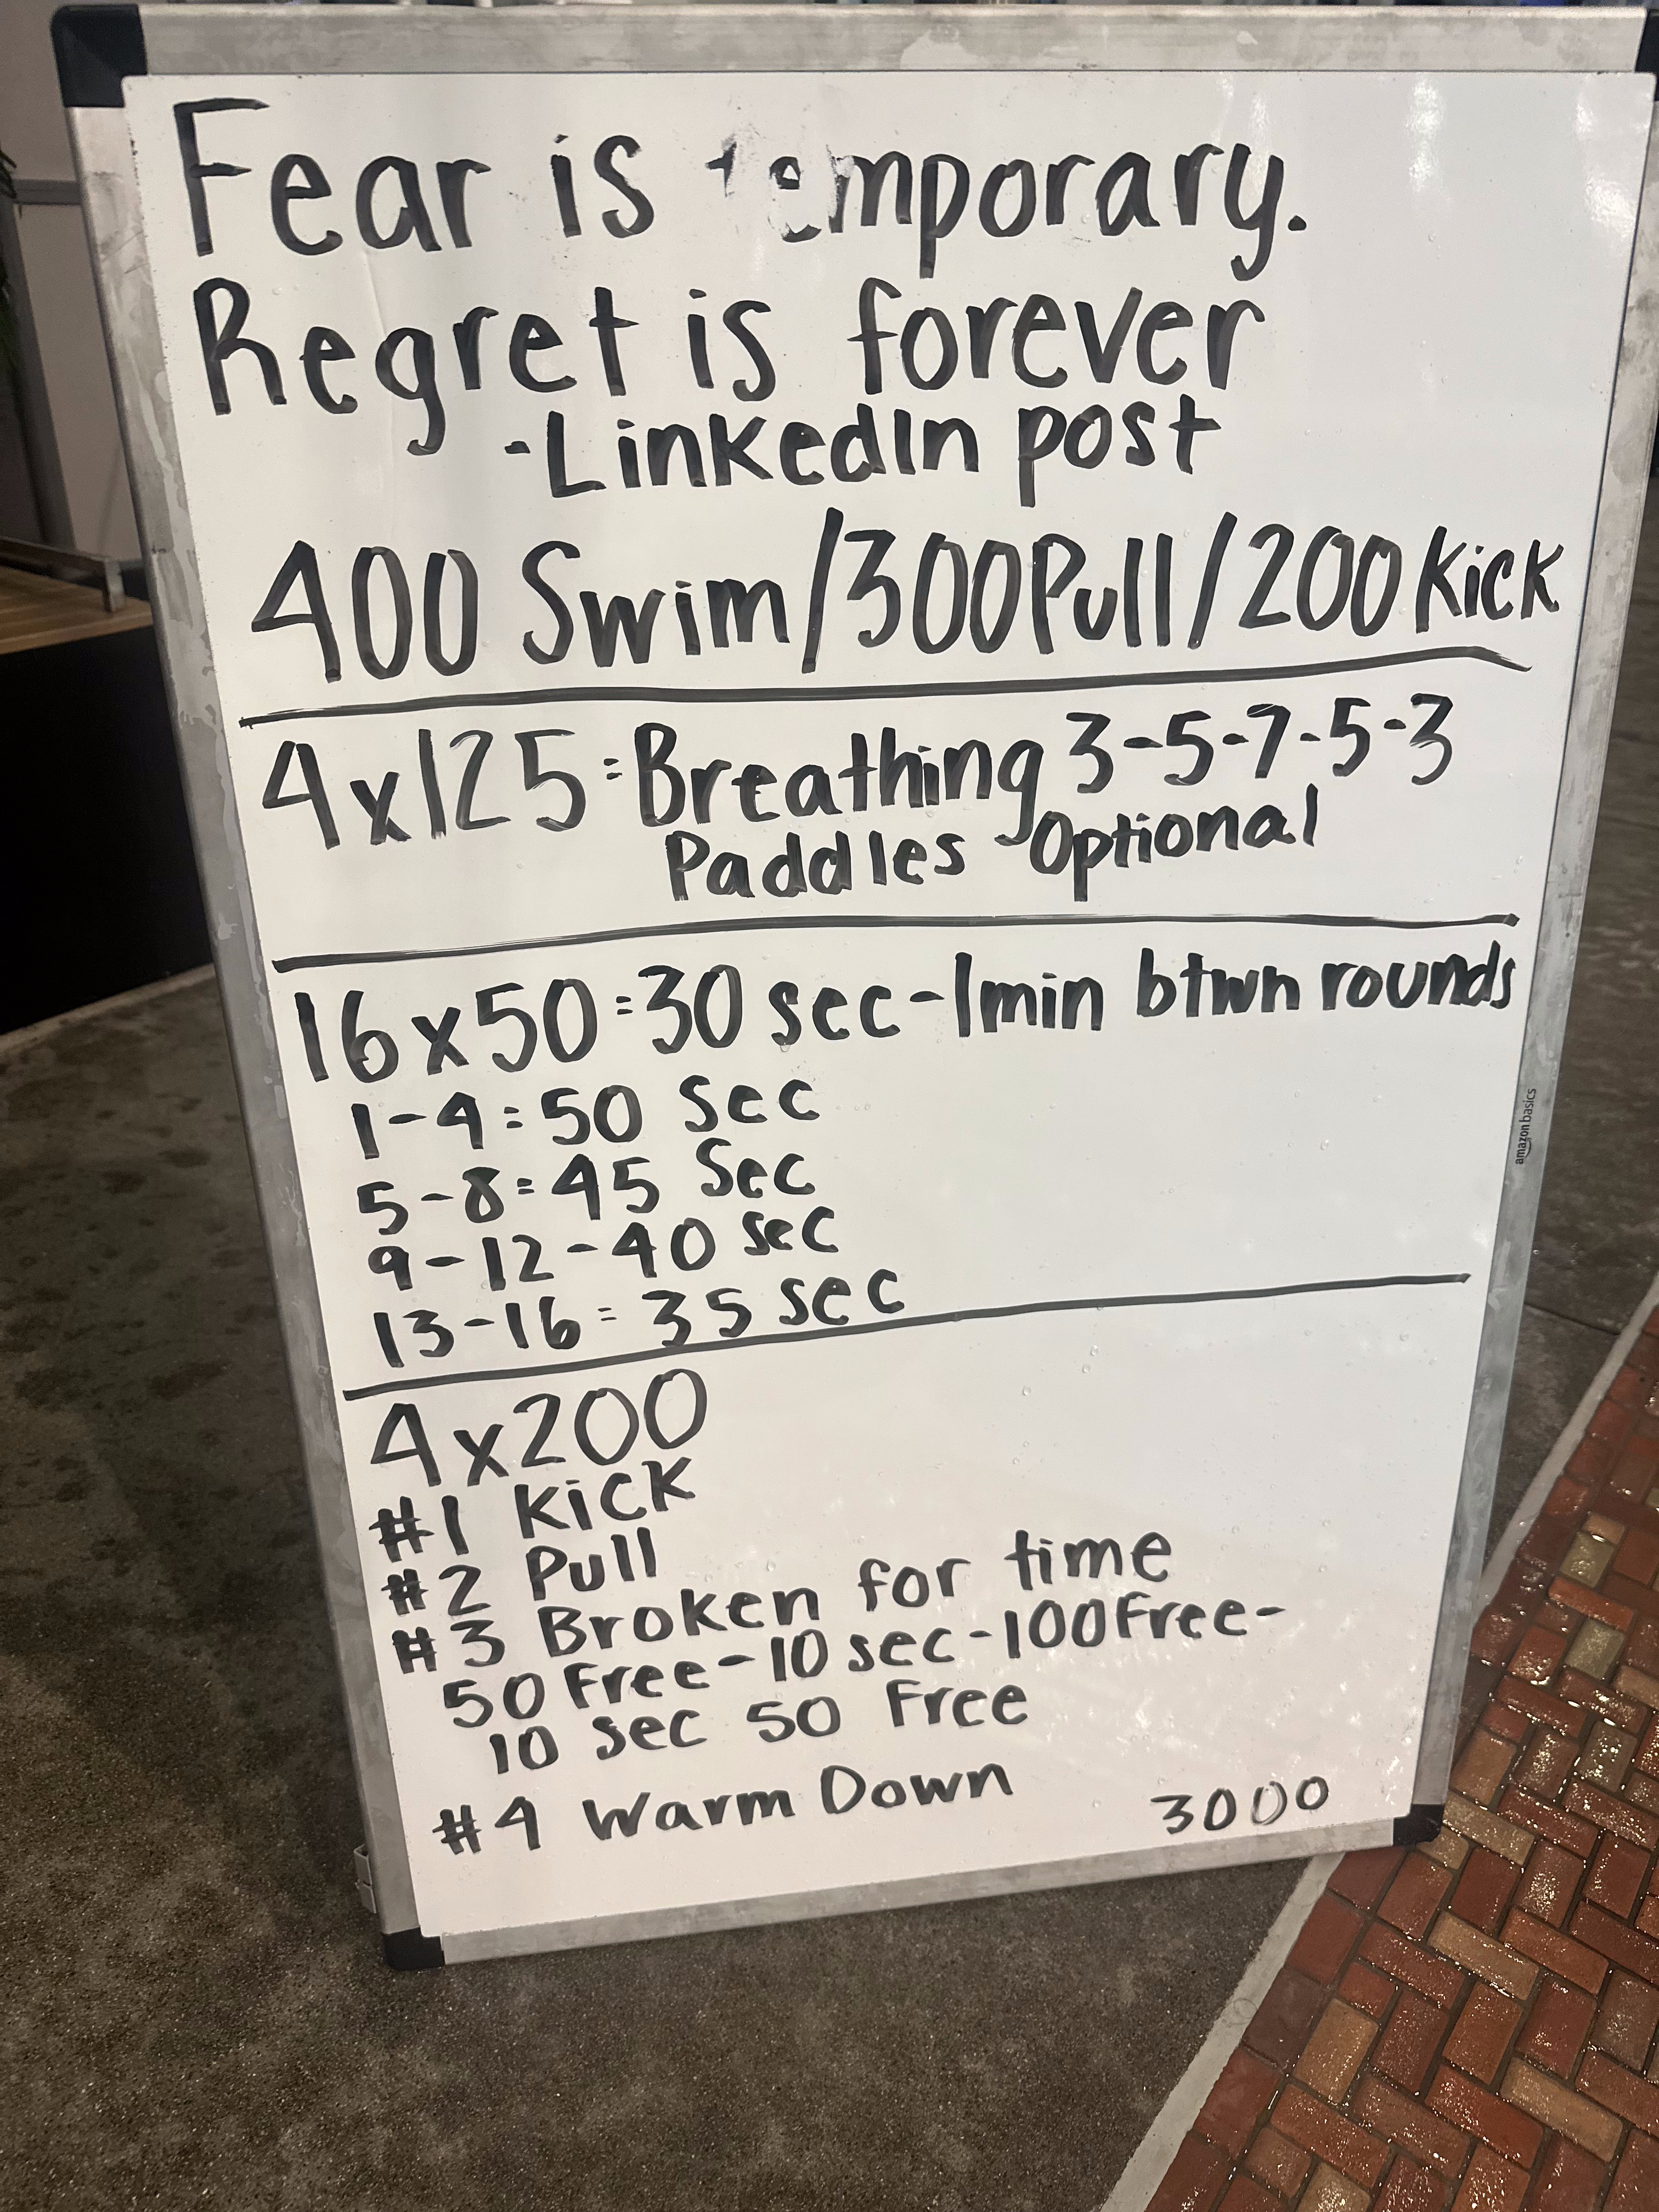 Fear is temporary.
Regret is forever
-LinkedIn post
400 Swim/300 Pull/200 Kick
4x125=Breathing 3-5-7-5-3
Paddles Optional
16x50=30 sec-1min btwn rounds
1-4=50 sec
5-8=45 sec
9-12-40 sec
13-16=35 sec
4x200
#1 Kick
#2 Pull
#3 Broken for time
50 Free-10 sec-100 Free-
10 sec 50 Free
#4 Warm Down
3000
amazon basics